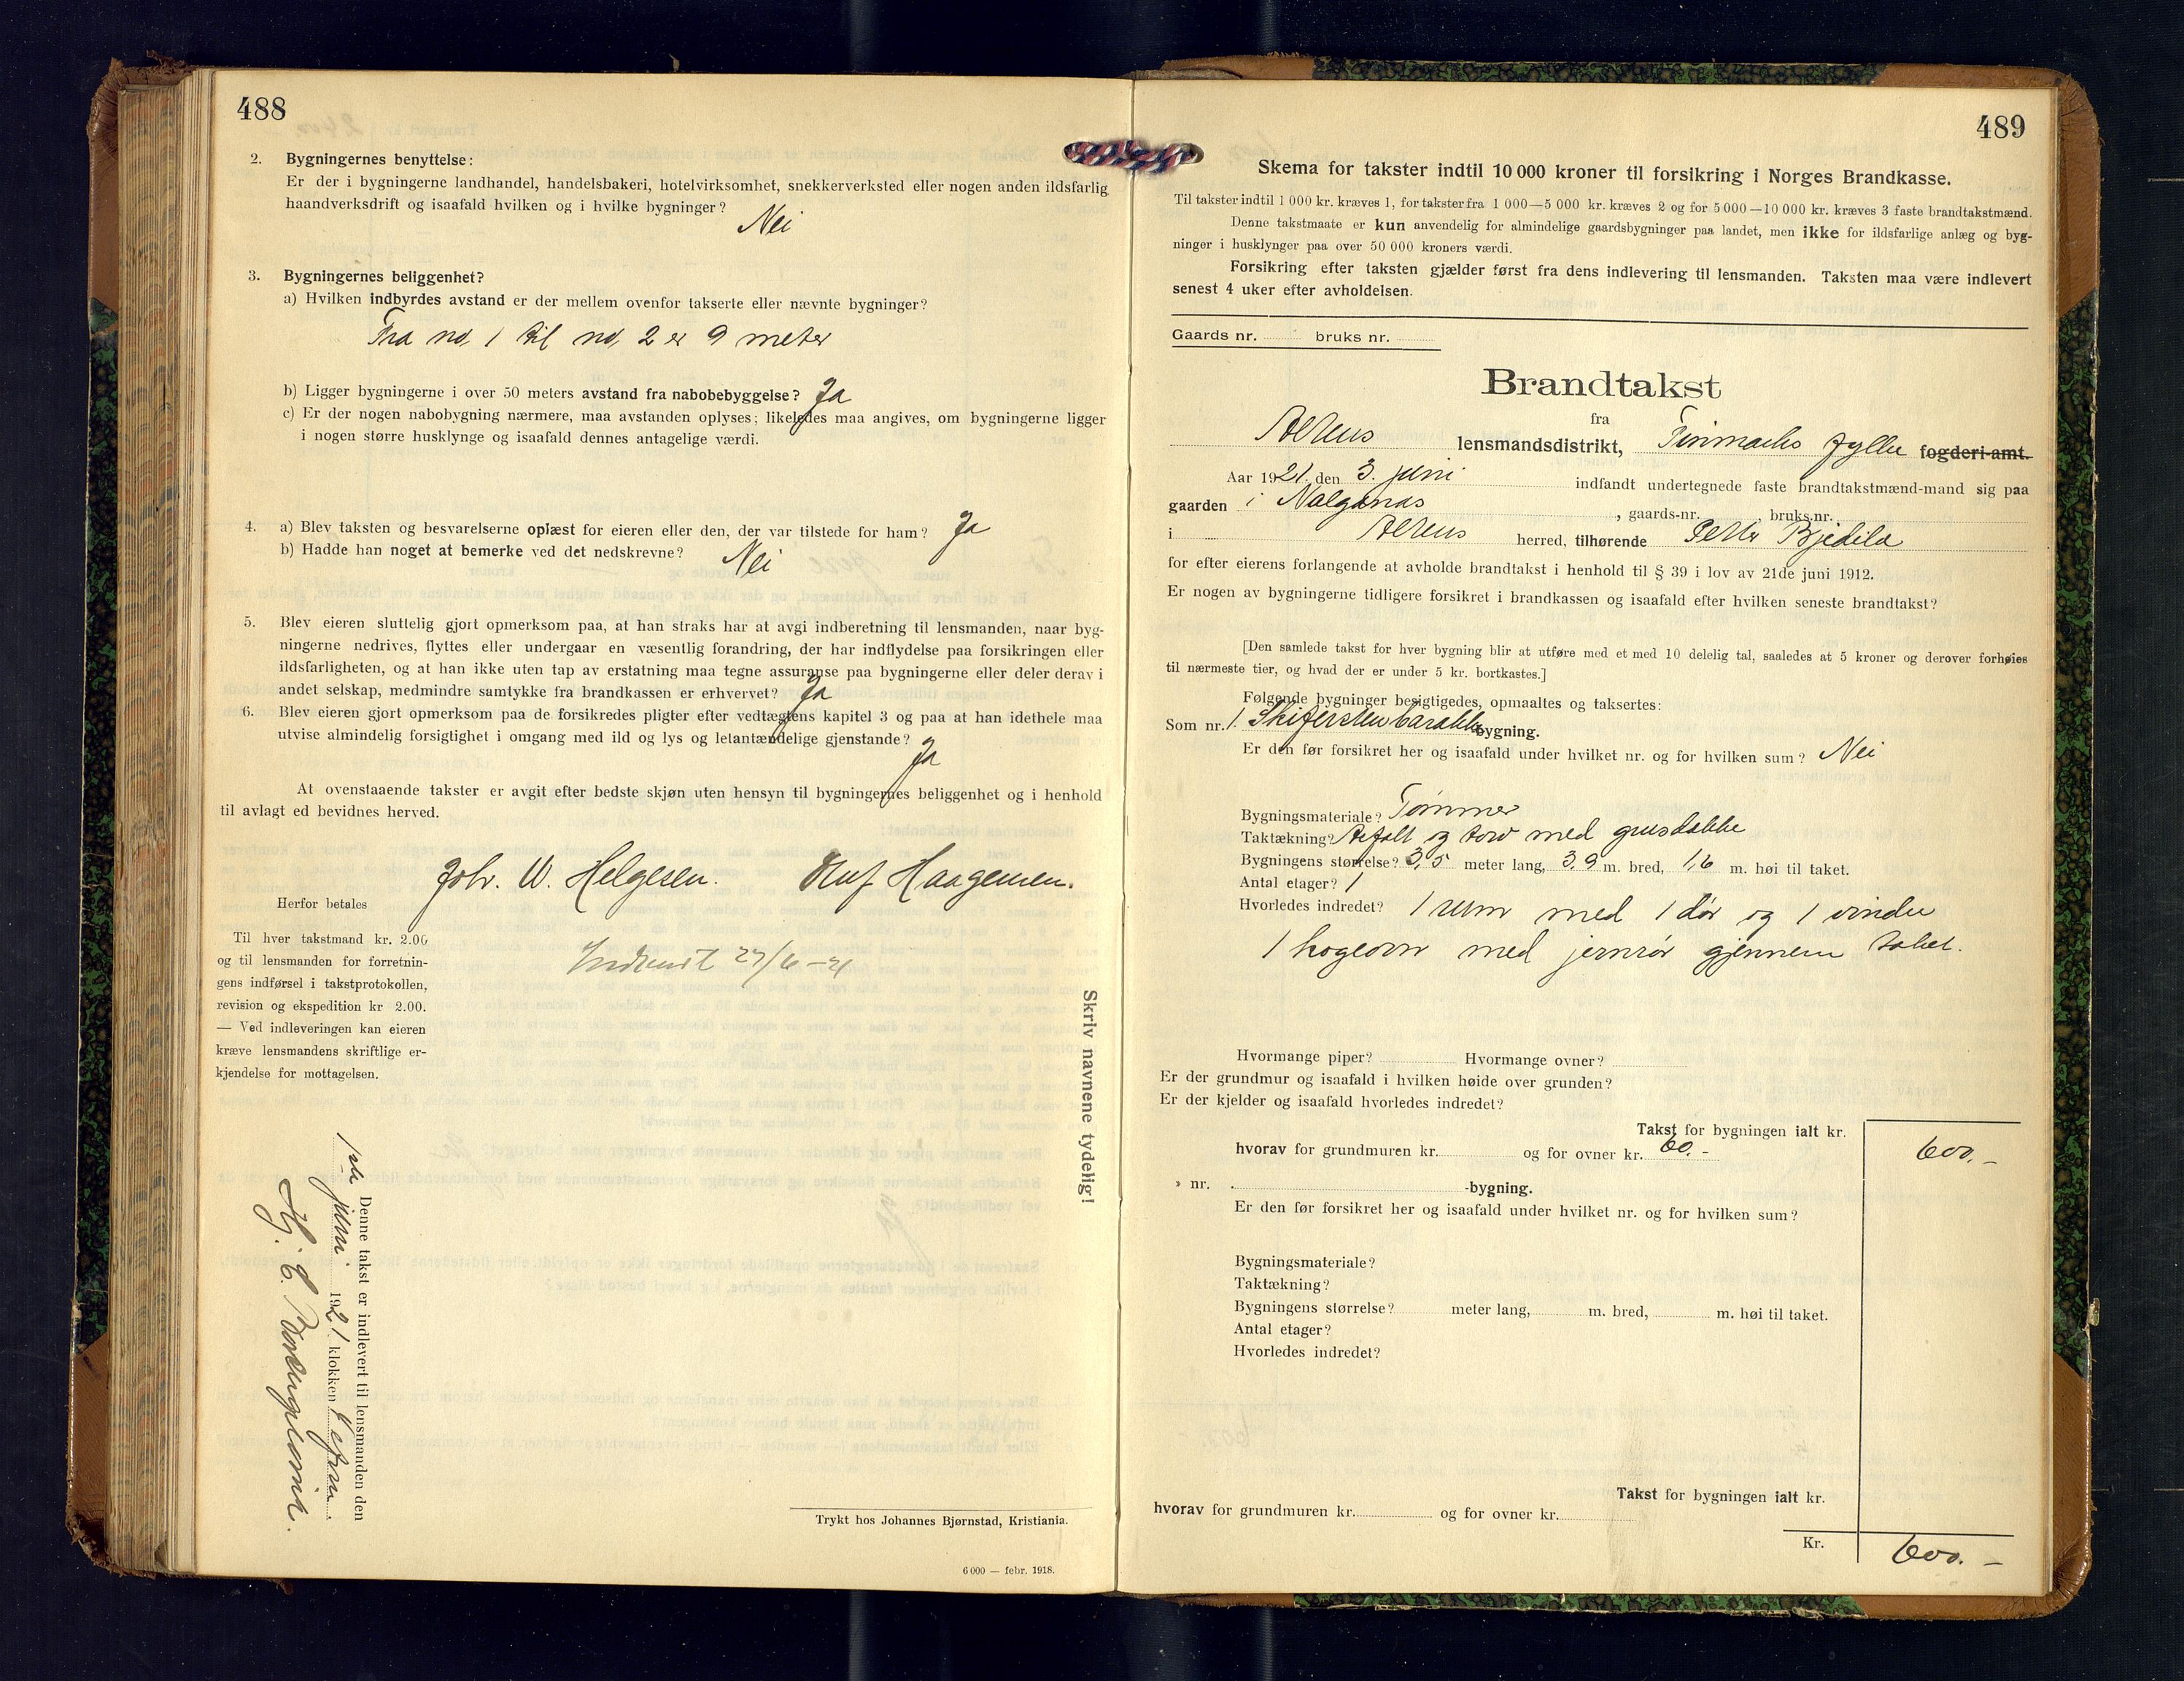 488
2. Bygningernes benyttelse:
Er der i bygningerne landhandel, handelsbakeri, hotelvirksomhet, snekkerverksted eller nogen anden ildsfarlig
haandverksdrift og isaafald hvilken og i hvilke bygninger?
Nei
3. Bygningernes beliggenhet?
a) Hvilken indbyrdes avstand er der mellem ovenfor takserte eller nævnte bygninger?
Fra no, 1 til no, 2 er 9 meter
b) Ligger bygningerne i over 50 meters avstand fra nabobebyggelse? Ja
c) Er der nogen nabobygning nærmere, maa avstanden oplyses; likeledes maa angives, om bygningerne ligger
i nogen større husklynge og isaafald dennes antagelige værdi.
4. a) Blev taksten og besvarelserne oplæst for eieren eller den, der var tilstede for ham? Ja
b) Hadde han noget at bemerke ved det nedskrevne? Nei
5. Blev eieren sluttelig gjort opmerksom paa, at han straks har at avgi indberetning til lensmanden, naar byg-
ningerne nedrives, flyttes eller undergaar en væsentlig forandring, der har indflydelse paa forsikringen eller
ildsfarligheten, og at han ikke uten tap av erstatning maa tegne assuranse paa bygningerne eller deler derav i
andet selskap, medmindre samtykke fra brandkassen er erhvervet? Ja
6. Blev eieren gjort opmerksom paa de forsikredes pligter efter vedtægtens kapitel 3 og paa at han idethele maa
utvise almindelig forsigtighet i omgang med ild og lys og letantændelige gjenstande?
Ja
At ovenstaaende takster er avgit efter bedste skjøn uten hensyn til bygningernes beliggenhet og i henhold
til avlagt ed bevidnes herved.
Joh. W. Helgesen. Oluf Haagensen.
Herfor betales
Til hver takstmand kr. 2.00
og til lensmanden for forretnin-
gens indførsel i takstprotokollen,
revision og ekspedition kr 2.00.
— Ved indleveringen kan eieren
kræve lensmandens skriftlige er-
kjendelse for mottagelsen.
27/6 - 21
Skriv navnene tydelig!
Denne takst er indlevert til lensmanden den
1ste juni 1921 klokken
Hj. C.
Trykt hos Johannes Bjørnstad, Kristiania.
6 000 — febr. 1918.
489
Skema for takster indtil 10 000 kroner til forsikring i Norges Brandkasse.
Til takster indtil 1 000 kr. kræves 1, for takster fra 1 000—5 000 kr. kræves 2 og for 5 000—10 000 kr. kræves 3 faste brandtakstmænd.
Denne takstmaate er kun anvendelig for almindelige gaardsbygninger paa landet, men ikke for ildsfarlige anlæg og byg-
ninger i husklynger paa over 50 000 kroners værdi.
Forsikring efter taksten gjælder først fra dens indlevering til lensmanden. Taksten maa være indlevert
senest 4 uker efter avholdelsen.
Gaards nr. bruks nr.
Brandtakst
fra
lensmandsdistrikt, Finmarks fylke fogderi-amt.
Aar 1921 den 3. juni indfandt undertegnede faste brandtakstmænd-mand sig paa
gaarden i , gaards-nr. , bruks nr.
i herred, tilhørende
for efter eierens forlangende at avholde brandtakst i henhold til § 39 i lov av 21de juni 1912.
Er nogen av bygningerne tidligere forsikret i brandkassen og isaafald efter hvilken seneste brandtakst?
[Den samlede takst for hver bygning blir at utføre med et med 10 delelig tal, saaledes at 5 kroner og derover forhøies
til nærmeste tier, og hvad der er under 5 kr. bortkastes.]
Følgende bygninger besigtigedes, opmaaltes og taksertes:
Som nr. 1. Skiferstenbarakke bygning.
Er den før forsikret her og isaafald under hvilket nr. og for hvilken sum? Nei
Bygningsmateriale? Tømmer
Taktækning? Asfalt og torv med
Bygningens størrelse? 3,5 meter lang, 3,9 m. bred, 1,6 m. høi til taket.
Antal etager? 1
Hvorledes indredet? 1 rum med 1 dør og 1 vindu
1 kogeovn med jernrør gjennem taket.
Hvormange piper? Hvormange ovner?
Er der grundmur og isaafald i hvilken høide over grunden?
Er der kjelder og isaafald hvorledes indredet?
Takst for bygningen ialt kr. 600. -
hvorav for grundmuren kr. og for ovner kr. 60. -
» nr. -bygning.
Er den før forsikret her og isaafald under hvilket nr. og for hvilken sum?
Bygningsmateriale?
Taktækning?
Bygningens størrelse? meter lang, m. bred, m. høi til taket.
Antal etager?
Hvorledes indredet?
Takst for bygningen ialt kr.
hvorav for grundmuren kr. og for ovner kr.
Kr. 600. -